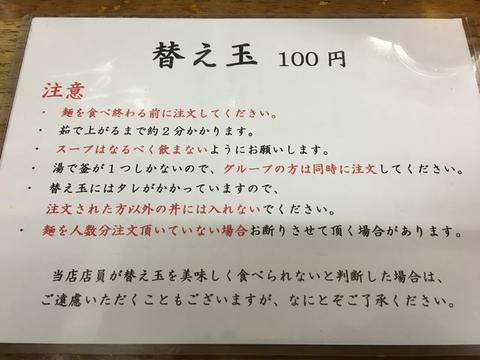 替え玉 100円
注意
・ 麺を食べ終わる前に注文してください。
・ 茹で上がるまで約2分かかります。
・ スープはなるべく飲まないようにお願いします。
・ 湯で釜が1つしかないので、グループの方は同時に注文してください。
・ 替え玉にはタレがかかっていますので、
注文された方以外の丼には入れないでください。
・ 麺を人数分注文頂いていない場合お断りさせて頂く場合があります。
当店店員が替え玉を美味しく食べられないと判断した場合は、
ご遠慮いただくこともございますが、なにとぞご了承ください。